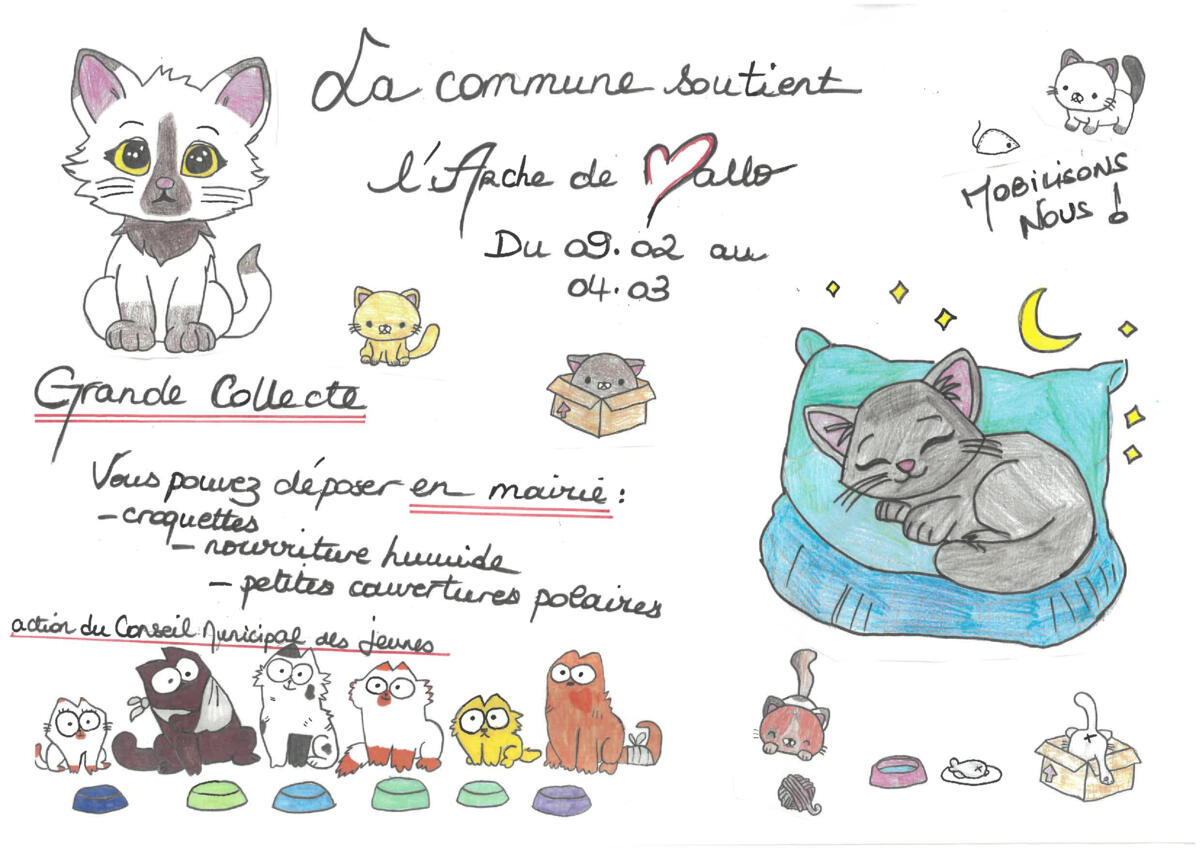 La commune soutient
l'Arche de Mallo
Du 09.02 au
04.03
MOBILISONS
NOUS !
Grande Collecte
Vous pouvez déposer en mairie :
- croquettes
- nourriture humide
- petites couvertures polaires
action du Conseil Municipal des jeunes